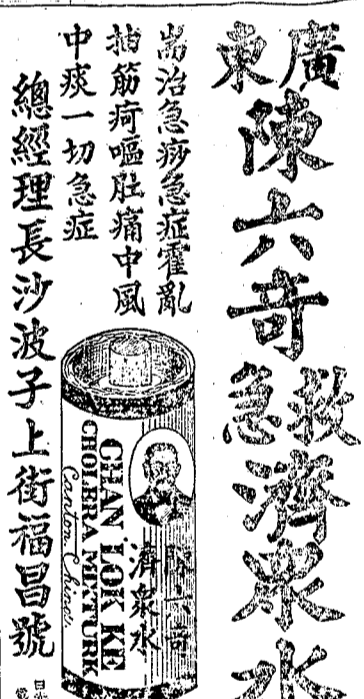 廣東
陳六奇
救急
濟眾水
耑治急痧急症霍亂
抽筋疴嘔肚痛中風
中痰一切急症
總經理長沙坡子上街福昌號
陳六奇
濟眾水
CHAN LOK KE
CHOLERA MIXTURE
Canton China